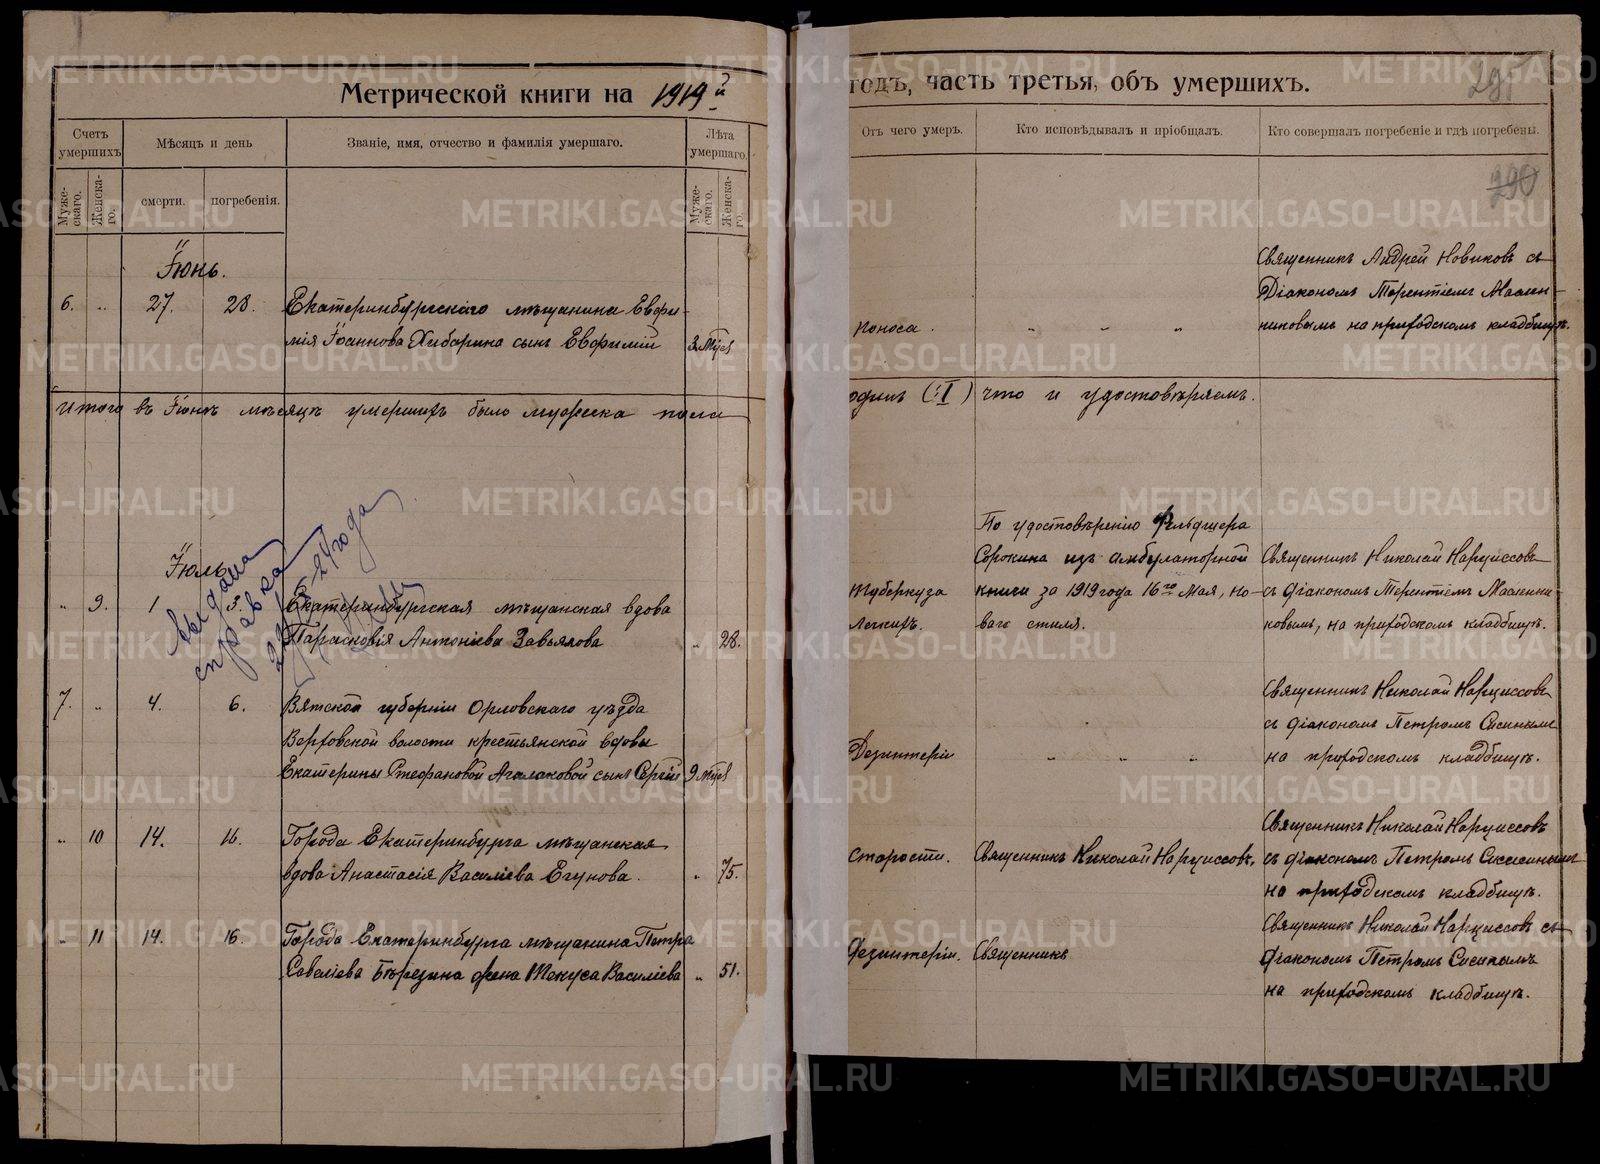 Метрической книги на 1919й годъ, часть третья, объ умершихъ.
295
290
Счетъ умершихъ
Мѣсяцъ и день
Званіе, имя, отчество и фамилія умершаго.
Лѣта умершаго.
Отъ чего умеръ.
Кто исповѣдывалъ и пріобщалъ.
Кто совершалъ погребеніе и гдѣ погребены.
Муже-
скаго.
Женска-
го.
смерти.
погребенія.
Муже-
скаго.
Женска-
го.
Іюнь.
6. „ 27. 28. Екатеринбургскаго мѣщанина Евфи-
мія Іоаннова Хибарина сынъ Евфимій 3 мѣс
поноса. „ „ „
Священникъ Андрей Новиковъ съ
Діакономъ Терентіемъ Маслен-
никовымъ на приходскомъ кладбищѣ.
Итого въ Іюнѣ мѣсяцѣ умершихъ было мужеска пола
одинъ (1) что и удостовѣряемъ.
Іюль
„ 9. 1 3. Екатеринбургская мѣщанская вдова
Парасковія Антоніева Завьялова „ 28.
Туберкуза
легкихъ.
По удостовѣренію Фельдшера
Сорокина изъ амбулаторной
книги за 1919 года 16го Мая, но-
ваго стиля.
Священникъ Николай Нарциссовъ
съ діакономъ Терентіемъ Маслени-
ковымъ, на приходскомъ кладбищѣ.
Выдана
справка
года
7. „ 4. 6. Вятской губерніи Орловскаго уѣзда
Верховской волости крестьянской вдовы
Екатерины Стефановой Агалаковой сынъ Сергій 9 мѣс
Дезинтеріи „ „ „
Священникъ Николай Нарциссовъ
съ діакономъ Петромъ Сисинымъ
на приходскомъ кладбищѣ.
„ 10 14. 16. Города Екатеринбурга мѣщанская
вдова Анастасія Василіева Егунова. „ 75.
Старости. Священникъ Николай Нарциссовъ.
Священникъ Николай Нарциссовъ
съ діакономъ Петромъ Сисинымъ
на приходскомъ кладбищѣ.
„ 11 14. 16. Города Екатеринбурга мѣщанина Петра
Савеліева Березина жена Текуса Василіева „ 51.
Дезинтеріи. Священникъ
Священникъ Николай Нарциссовъ съ
діакономъ Петромъ Сисинымъ
на приходскомъ кладбищѣ.
METRIKI.GASO-URAL.RU